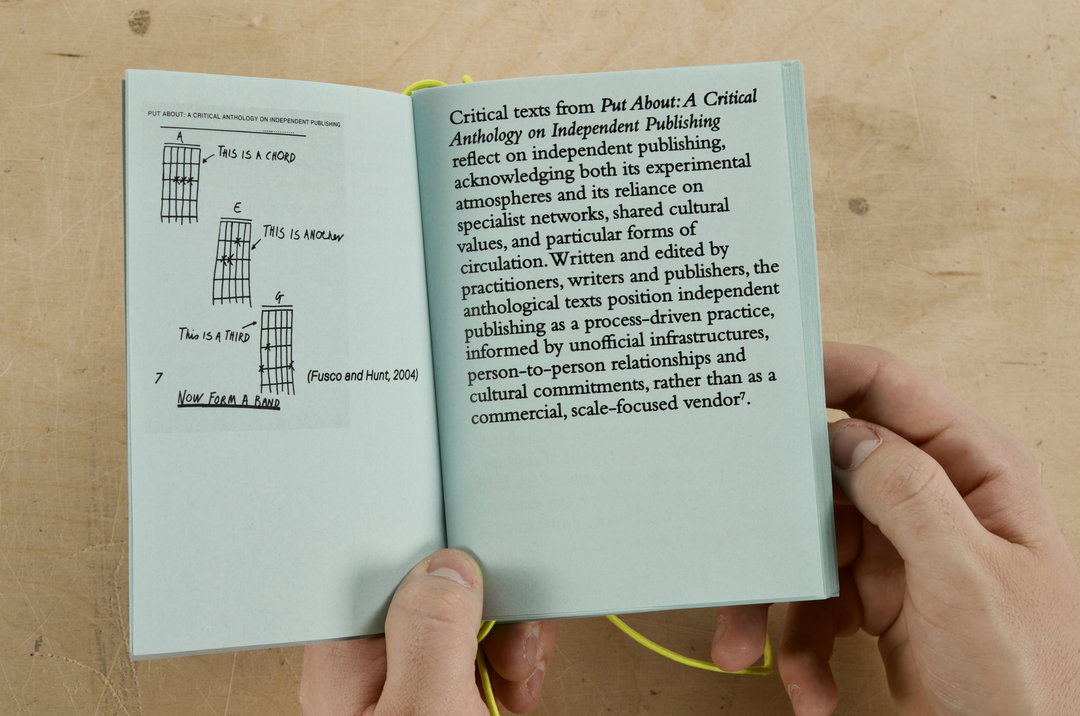 PUT ABOUT: A CRITICAL ANTHOLOGY ON INDEPENDENT PUBLISHING
A
THIS IS A CHORD
E
THIS IS ANOTHER
G
THIS IS A THIRD
7
(Fusco and Hunt, 2004)
NOW FORM A BAND
Critical texts from Put About: A Critical
Anthology on Independent Publishing
reflect on independent publishing,
acknowledging both its experimental
atmospheres and its reliance on
specialist networks, shared cultural
values, and particular forms of
circulation. Written and edited by
practitioners, writers and publishers, the
anthological texts position independent
publishing as a process-driven practice,
informed by unofficial infrastructures,
person-to-person relationships and
cultural commitments, rather than as a
commercial, scale-focused vendor⁷.